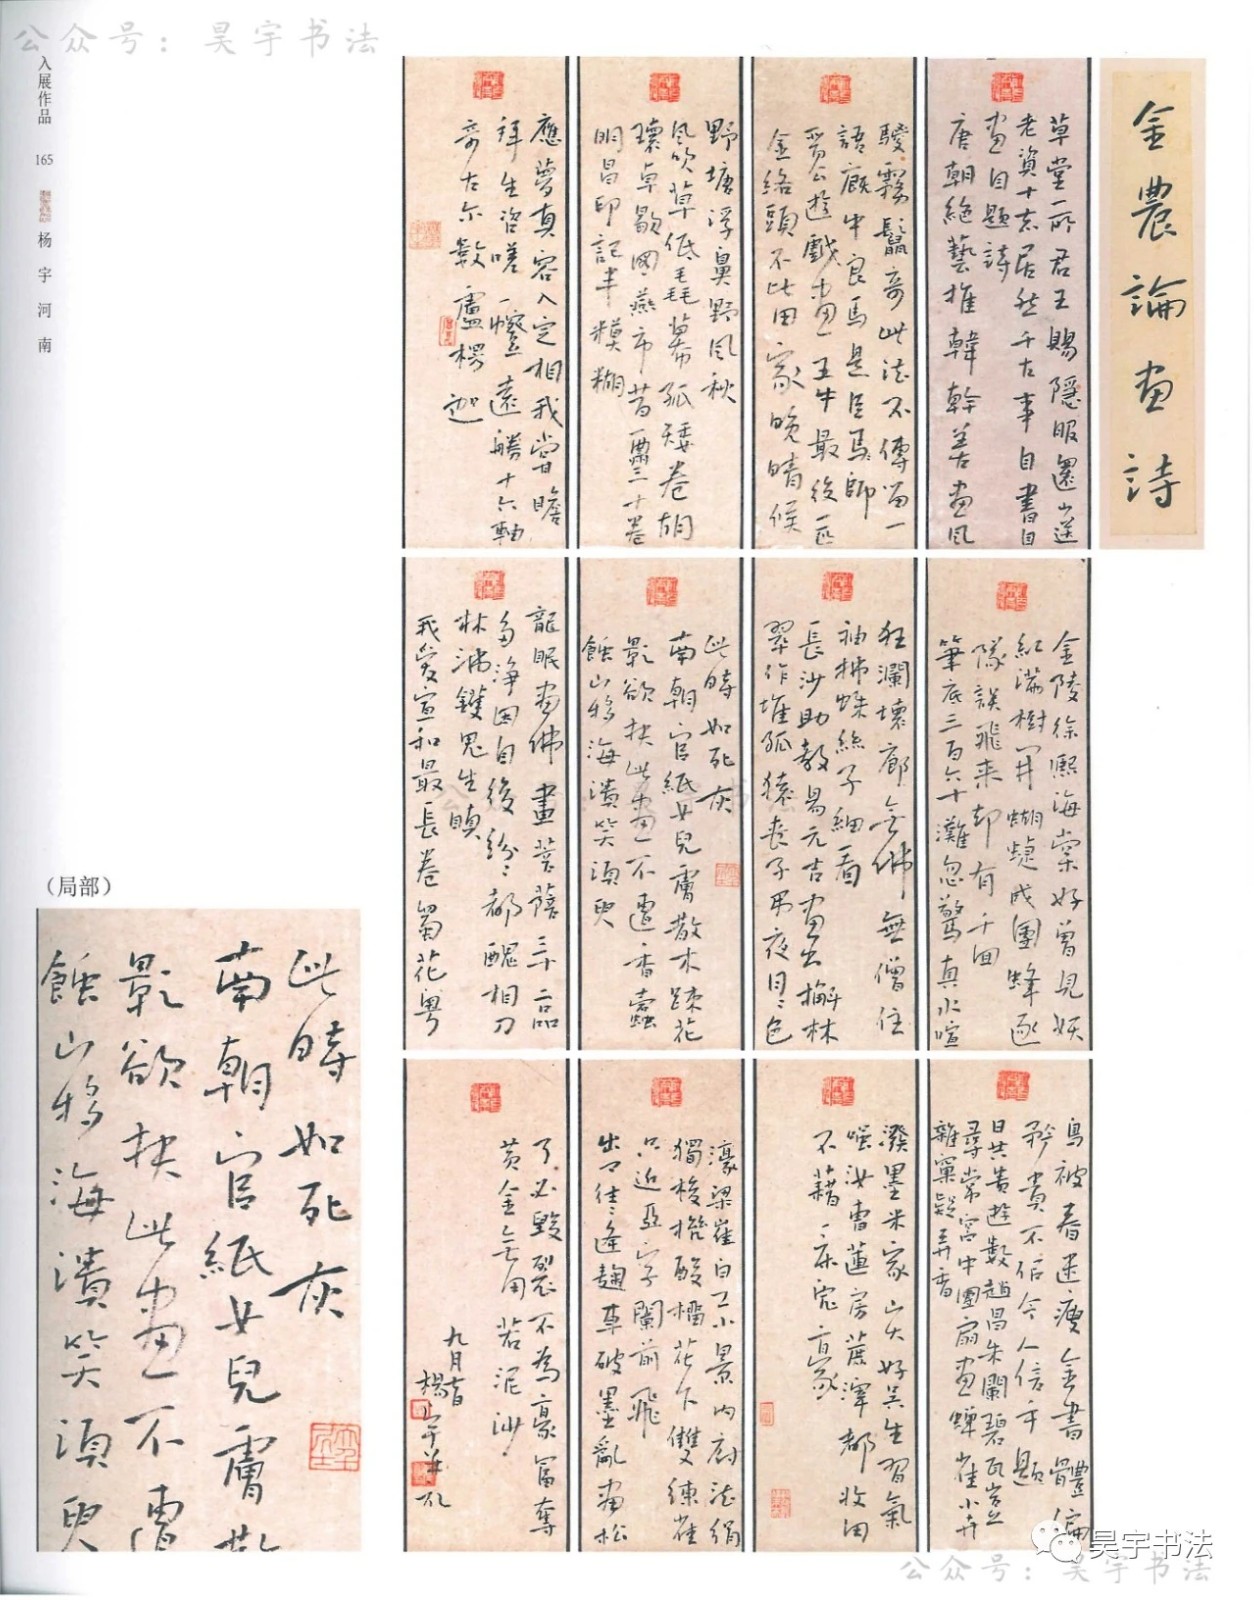 公众号：昊宇书法
入展作品 165 杨宇 河南
金農論畫詩
草堂一所君王賜隱服還山送
老資十志居然千古事自書自
畫自題詩
唐朝絕藝推韓幹善畫風
騣霧鬣奇此法不傳留一
語廐中良馬是臣馬師
晋公遊戲畫一五牛最後一匹
金絡頭不比田家晚晴候
野塘浮鼻野風秋
風吹草低毛毛幕孤矮卷胡
瓌卓歇圖燕市昔霑三十卷
明昌印記半糢糊
應夢真容入定相我嘗瞻
拜生咨嗟一幢遠勝十六軸
奇古尔數盧楞迦
金陵徐熙海棠好曾見妖
紅滿樹開蝴蜨成團蜂逐
隊誤飛来却有千回
筆底三百六十灘忽驚真水喧
狂瀾壞廊無佛無僧住
袖拂蛛絲子細看
長沙助教易元吉畫出檞林
翠作堆孤猿喪子弔夜月月色
此時如死灰
南朝官紙女兒膚散木疎花
影欲扶此畫不遭香蠹
蝕山移海潰笑須臾
龍眠畫佛畫菩薩三十六品
多淨因自後紛紛都醜相刀
林沸鑊鬼生瞋
我愛宣和最長卷蜀花粤
鳥被春迷瘦金書體編
矜貴不信今人信手題
日共貴遊數趙昌朱闌碧瓦豈
尋常宮中團扇畫蟬雀小卉
雜窠疑弄香
潑墨米家山大好吴生習氣
嗤汝曹蓮房蔗滓都收用
不藉一床宛首豪
濠梁崔白工小景内府法絹
獨梭抛酸橊花下雙練雀
只近亞字闌前飛
出入往往逢麹車破墨亂畫松
了必毀裂不為豪富奪
黄金無用若泥沙
九月吉
楊宇并記
（局部）
此時如死灰
南朝官紙女兒膚散
影欲扶此畫不遭
蝕山移海潰笑須臾
昊宇书法
公众号：昊宇书法